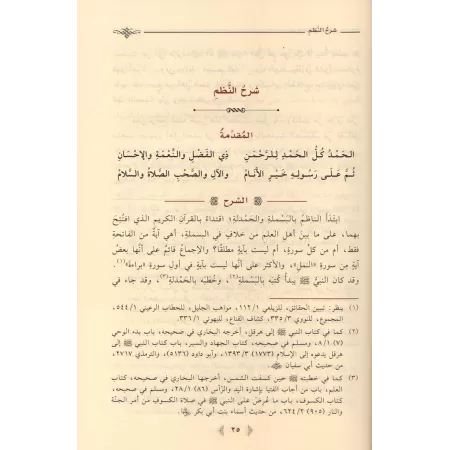 شرحُ النَّظم
شرحُ النَّظمِ
المُقدِّمةُ
الحَمْدُ كُلُّ الحَمْدِ لِلرَّحْمٰنِ ذِي الفَضْلِ والنِّعْمَةِ والإحْسَانِ
ثُمَّ عَلَى رَسُولِهِ خَيْرِ الأَنَامْ والآلِ والصَّحْبِ الصَّلاةُ والسَّلامْ
الشرح
ابتَدَأَ الناظمُ بالبَسملةِ والحَمدَلةِ؛ اقتداءً بالقرآن الكريم الذي افتُتِحَ
بهما، على ما بينَ أهلِ العلمِ من خلافٍ في البسملةِ، أهي آيةٌ من الفاتحة
فقط، أم من كلِّ سورةٍ، أم ليست بآيةٍ مطلقًا؟ والإجماعُ قائمٌ على أنَّها بعضُ
آيةٍ مِن سورةِ «النمل»، والأكثر على أنَّها ليست بآيةٍ في أول سورةِ «براءة»(١).
وقد كان النبيُّ ﷺ يبدأُ كُتبَه بالبسملةِ(٢)، وخُطَبَه بالحَمْدلةِ(٣)، وقد جاء في
(١) ينظر: تبيين الحقائق، للزيلعي ١١٢/١، مواهب الجليل، للحطاب الرعيني ٥٤٤/١،
المجموع، للنووي ٣٣٥/٣، كشاف القناع، للبهوتي ٣٣٦/١.
(٢) كما في كتاب النبي ﷺ إلى هرقل، أخرجه البخاري في صحيحه، باب بدء الوحي
(٧) ٨/١، ومسلم في صحيحه، كتاب الجهاد والسير، باب كتاب النبي ﷺ إلى
هرقل يدعوه إلى الإسلام (١٧٧٣) ١٣٩٣/٣، وأبو داود (٥١٣٦)، والترمذي ٢٧١٧،
من حديث أبي سفيان
(٣) كما في خطبته ﷺ حين كسفت الشمس، أخرجها البخاري في صحيحه، كتاب
العلم، باب من أجاب الفتيا بإشارة اليد والرأس (٨٦) ٢٨/١، ومسلم في صحيحه،
كتاب الكسوف، باب ما عُرض على النبي ﷺ في صلاة الكسوف من أمر الجنة
والنار (٩٠٥) ٦٢٤/٢، من حديث أسماء بنت أبي بكر
٢٥